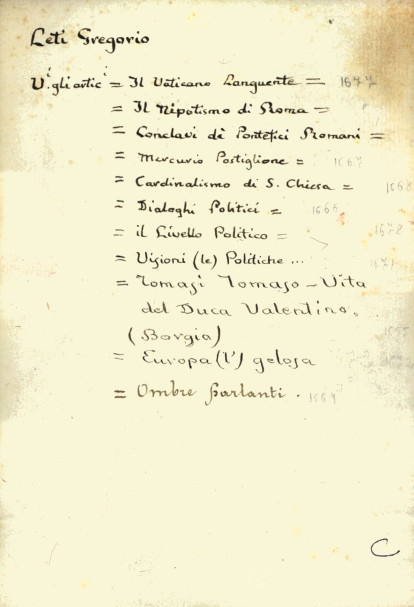 Leti Gregorio
Vi gli artic = Il Vaticano Languente = 1677
= Il Nipotismo di Roma =
= Conclavi di Pontefici Romani =
= Mercurio Postiglione = 1667
= Cardinalismo di S. Chiesa = 1668
= Dialoghi Politici = 1666
= il Livello Politico = 1678
= Visioni (le) Politiche ... 1671
= Tomasi Tomaso - Vita
del Duca Valentino.
(Borgia)
= Europa (l') gelosa
= Ombre parlanti.
C